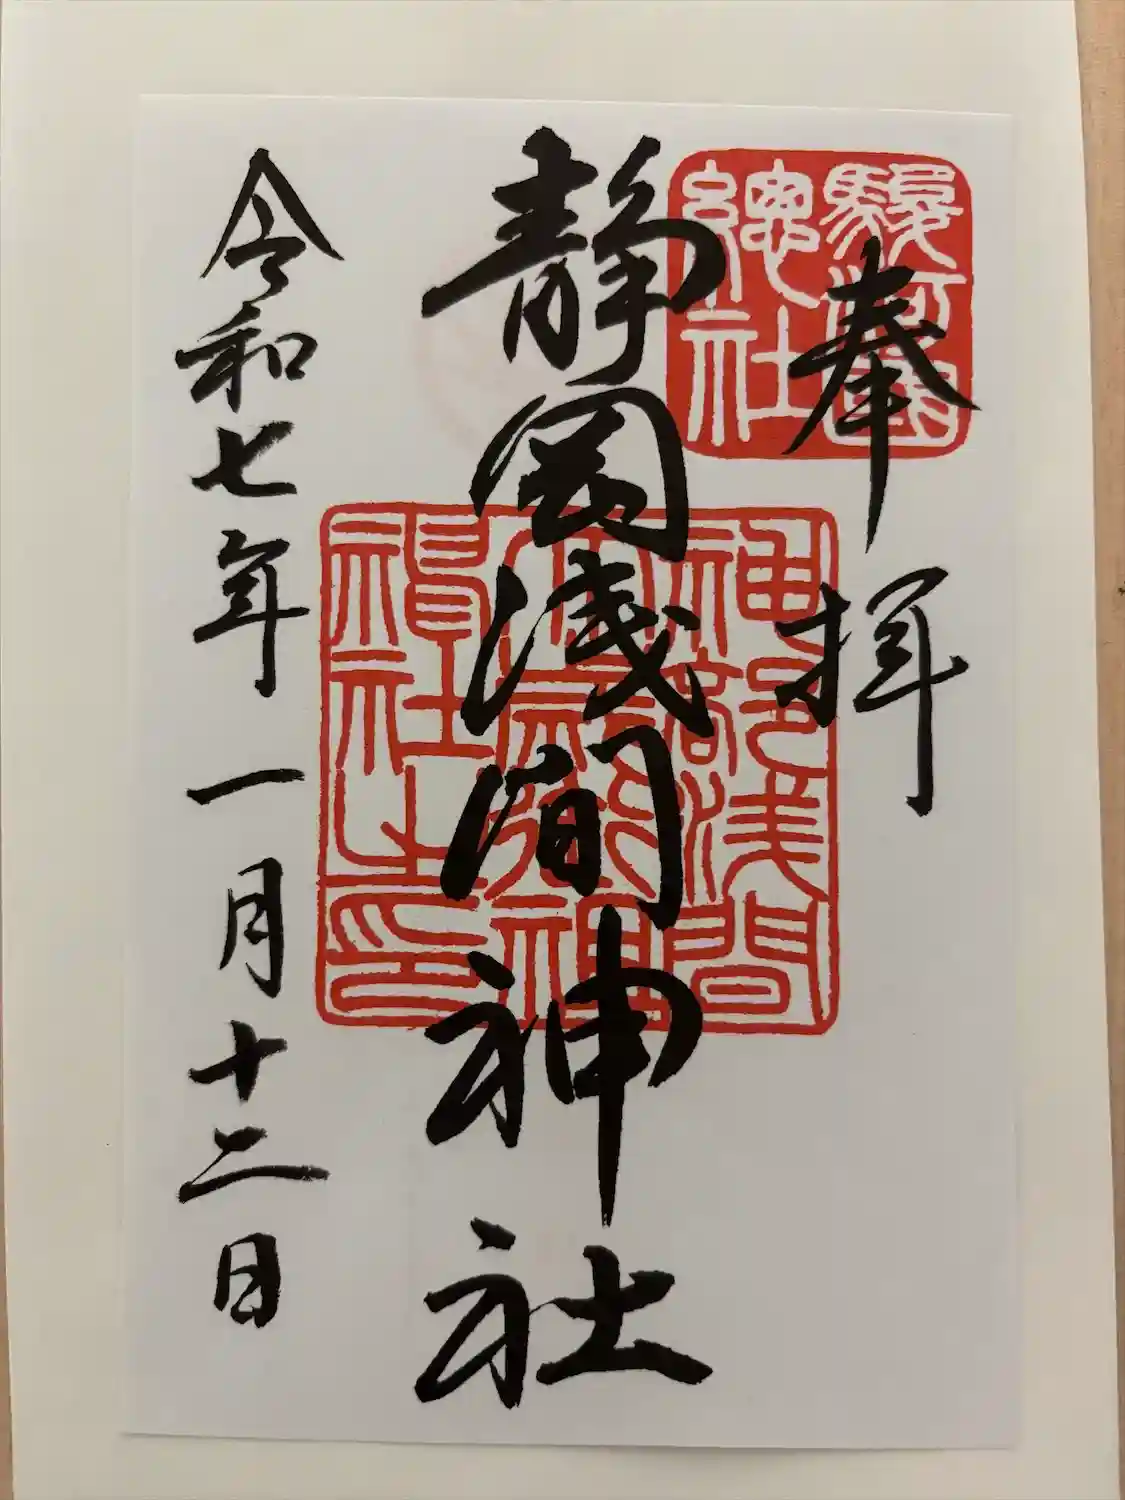 奉拝
駿河國
總社
静岡浅間神社
神部浅間
令和七年一月十二日